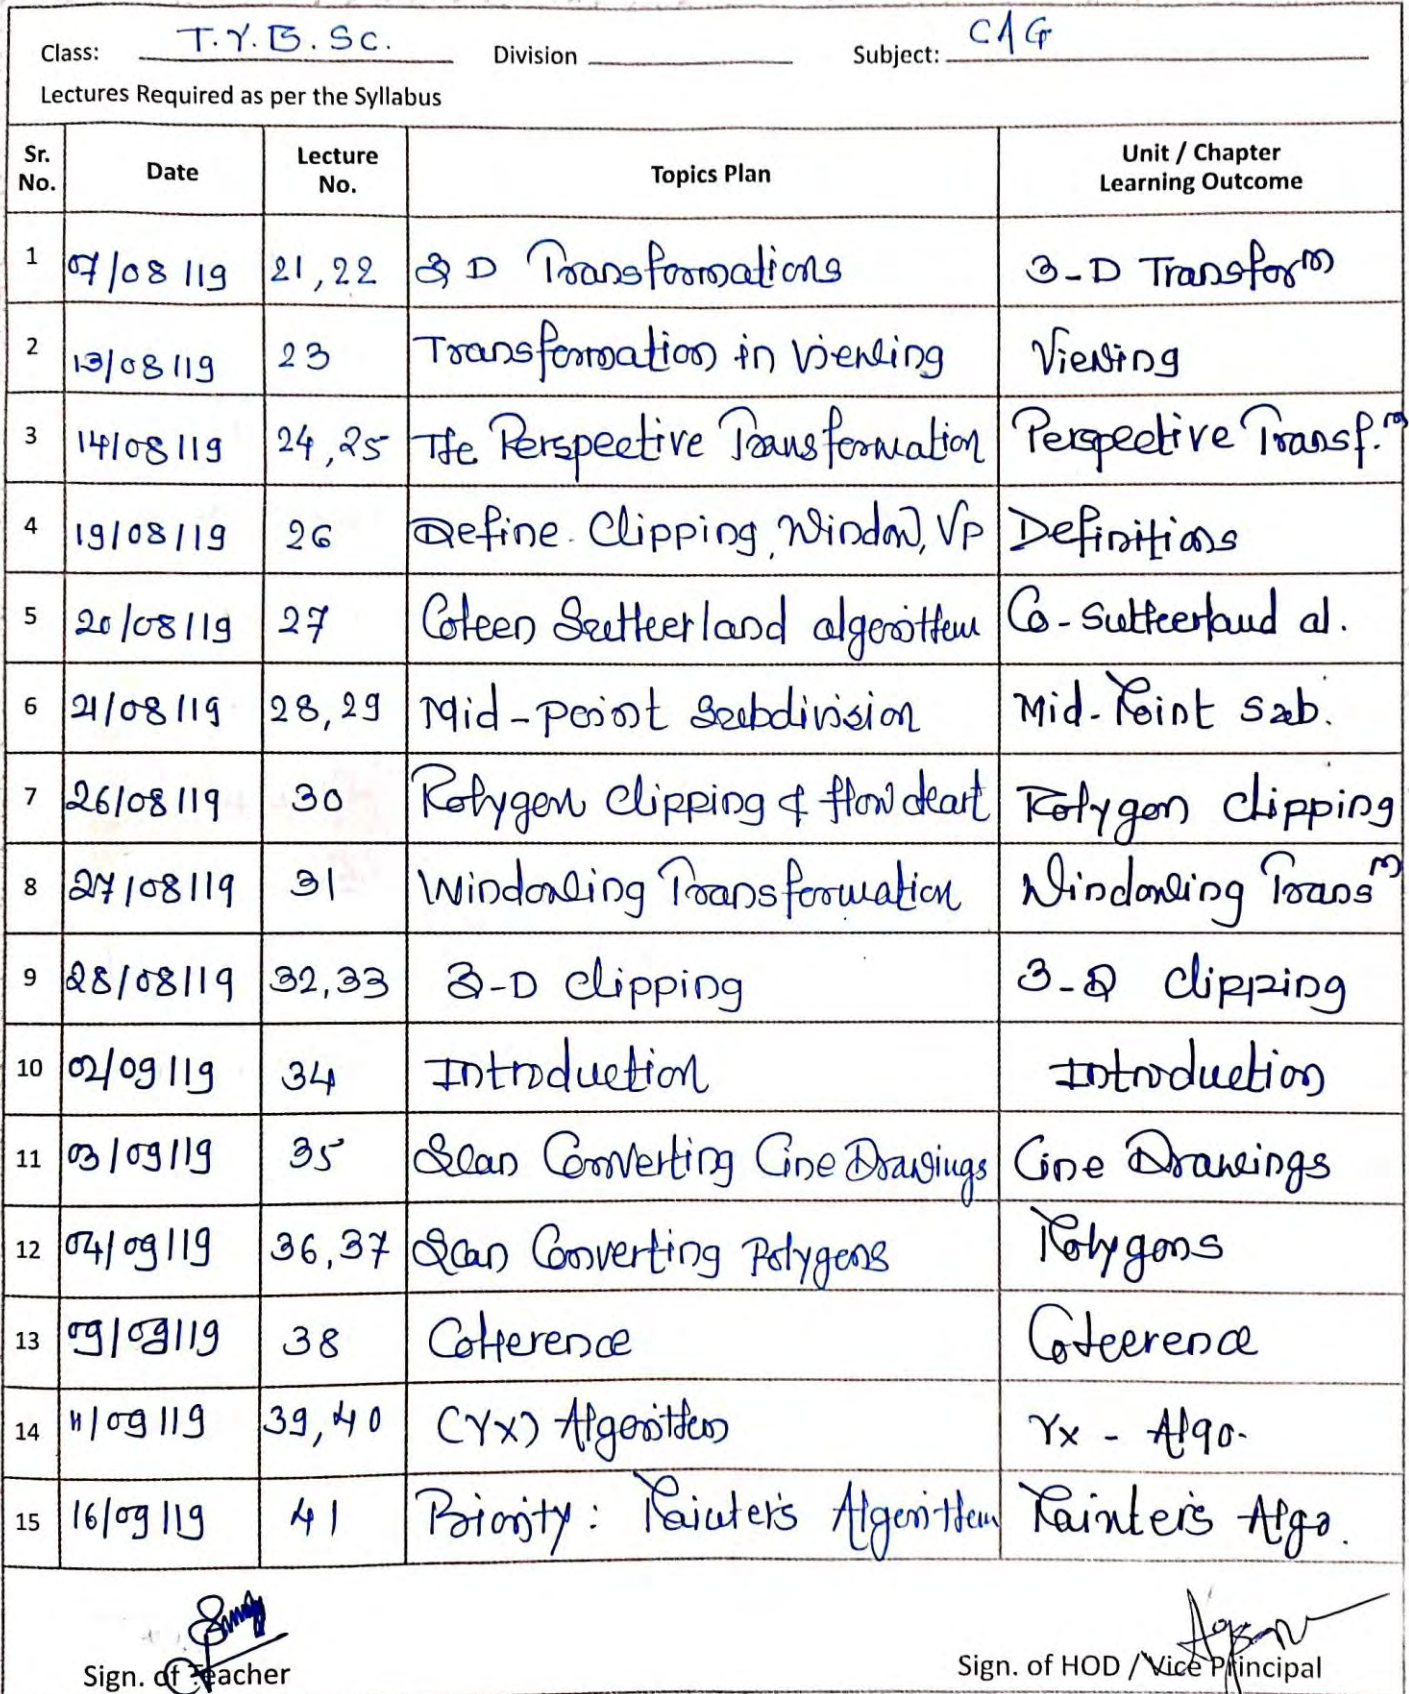 Class: T.Y.B.Sc. Division Subject: CAG
Lectures Required as per the Syllabus
Sr. No. Date Lecture No. Topics Plan Unit / Chapter Learning Outcome
1 07/08/19 21,22 3 D Transformations 3-D Transfor^m
2 13/08/19 23 Transformation in Viewing Viewing
3 14/08/19 24,25 The Perspective Transformation Perspective Transf.^n
4 19/08/19 26 Define. Clipping, Window, VP Definitions
5 20/08/19 27 Cohen Sutherland algorithm Co-Sutherland al.
6 21/08/19 28,29 Mid-point Subdivision Mid-Point Sub.
7 26/08/19 30 Polygon Clipping & flowchart Polygon Clipping
8 27/08/19 31 Windowing Transformation Windowing Trans^n
9 28/08/19 32,33 3-D Clipping 3-D Clipping
10 02/09/19 34 Introduction Introduction
11 03/09/19 35 Scan Converting Line Drawings Line Drawings
12 04/09/19 36,37 Scan Converting Polygons Polygons
13 09/09/19 38 Coherence Coherence
14 11/09/19 39,40 (YX) Algorithm YX - Algo.
15 16/09/19 41 Priority: Painter's Algorithm Painter's Algo.
Sign. of Teacher Sign. of HOD / Vice Principal